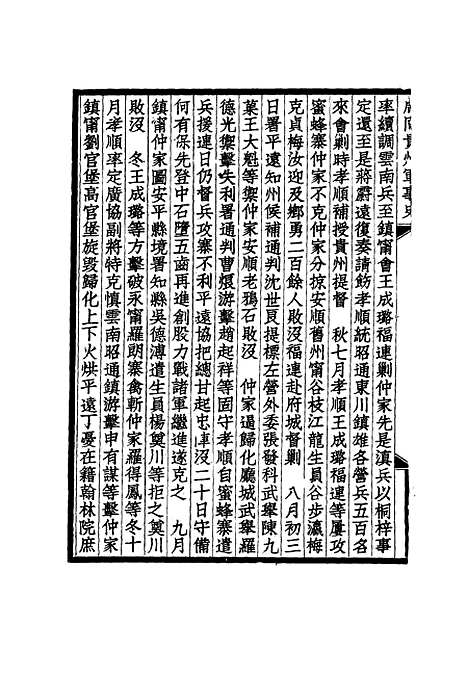 率續調雲南兵至鎮甯會王成璐福連剿仲家先是滇兵以桐梓事
定還至是蔣霨遠復奏請飭孝順統昭通東川鎮雄各營兵五百名
來會剿時孝順補授貴州提督　秋七月孝順王成璐福連等屢攻
蜜蜂寨仲家不克仲家分掠安順舊州甯谷枝江龍生員谷步瀛梅
克貞梅汝迎及鄉勇二百餘人敗沒福連赴府城督剿　八月初三
日署平遠知州候補通判沈世良提標左營外委張發科武舉陳九
菓王大魁等禦仲家安順老鴉石敗沒　仲家逼歸化廳城武舉羅
德光禦擊失利署通判曹煨游擊趙起祥等固守孝順自蜜蜂寨遣
兵援連日仍督兵攻寨不利平遠協把總甘起忠陣沒二十日守備
何有保先登中石墮五齒再進創股力戰諸軍繼進遂克之　九月
鎮甯仲家圍安平縣境署知縣吳德溥遣生員楊奠川等拒之奠川
敗沒　冬王成璐等方擊破永甯羅朗寨禽斬仲家羅得鳳等冬十
月孝順率定廣協副將特克慎雲南昭通鎮游擊申有謀等擊仲家
鎮甯劉官堡高官堡旋毀歸化上下火烘平遠丁憂在籍翰林院庶